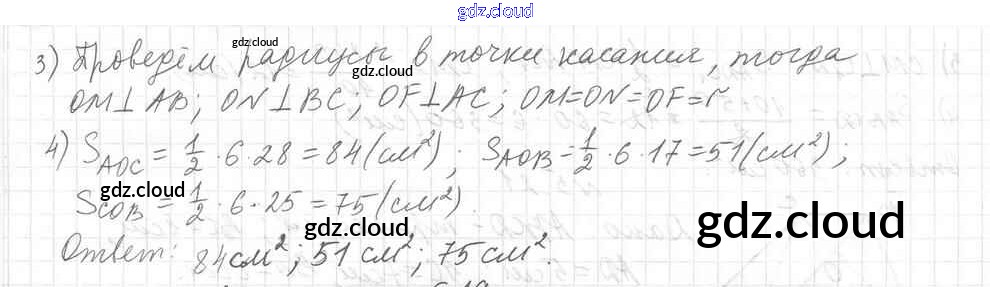 gdz.cloud
3) Проведём радиусы в точки касания, тогда
gdz.cloud
gdz.cloud
OM⊥AB; ON⊥BC; OF⊥AC; OM=ON=OF=r
4) S_AOC = 1/2 · 6 · 28 = 84 (см²); S_AOB = 1/2 · 6 · 17 = 51 (см²);
gdz.cloud
S_COB = 1/2 · 6 · 25 = 75 (см²)
gdz.cloud
gdz.cloud
Ответ: 84 см²; 51 см²; 75 см².